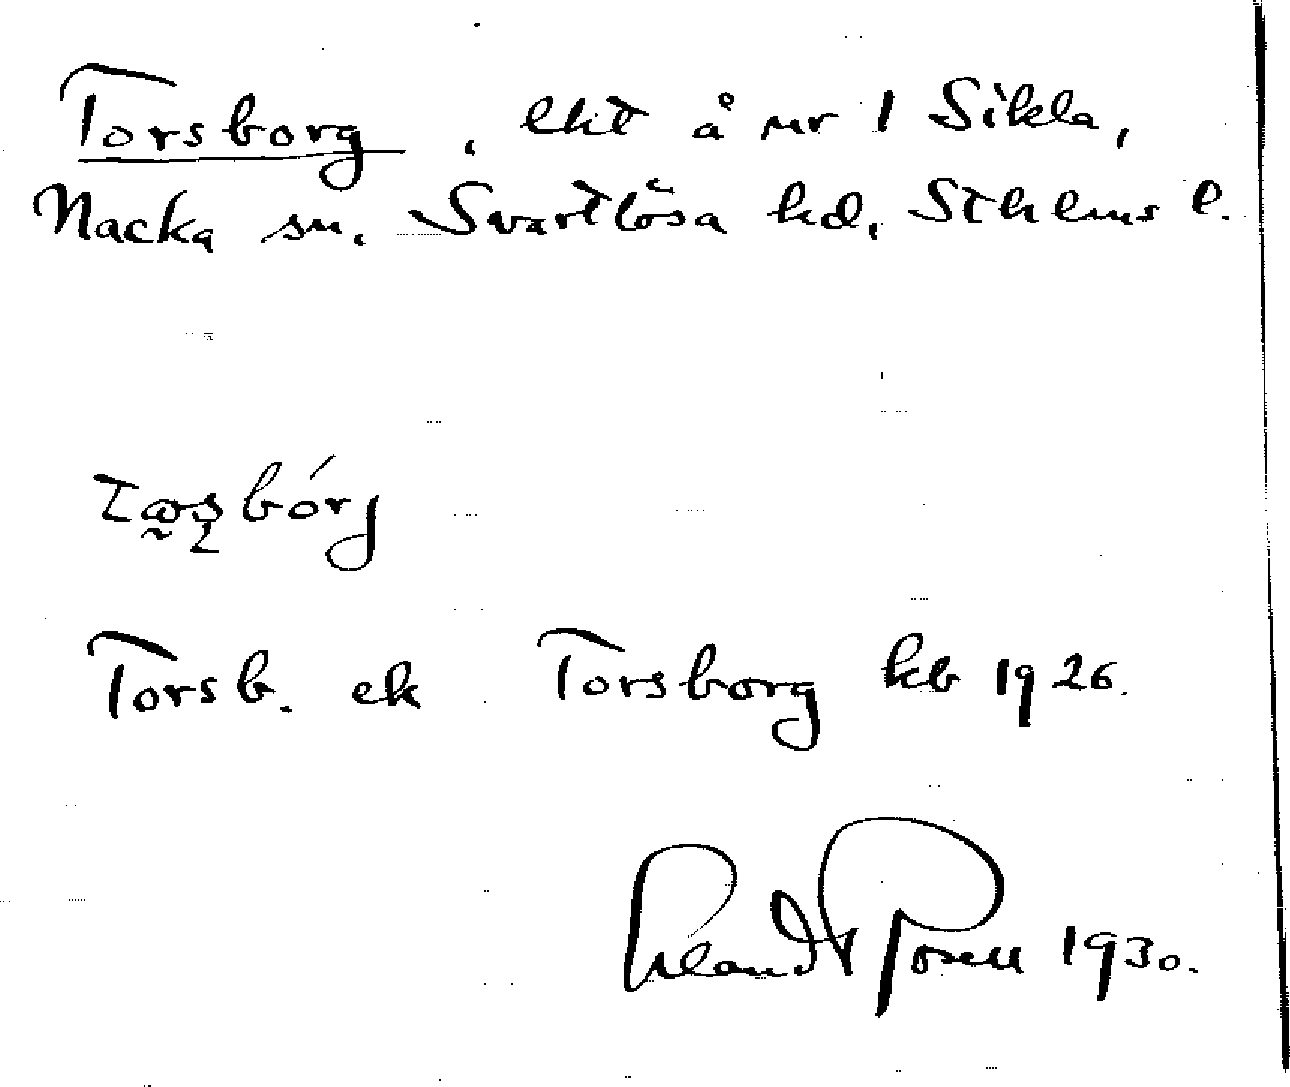 Torsborg, lht å nr 1 Sikla,
Nacka sn. Svartlösa hd, Sthlms l.
bórj
Torsb. ek Torsborg kb 1926.
Erland Rosell 1930.